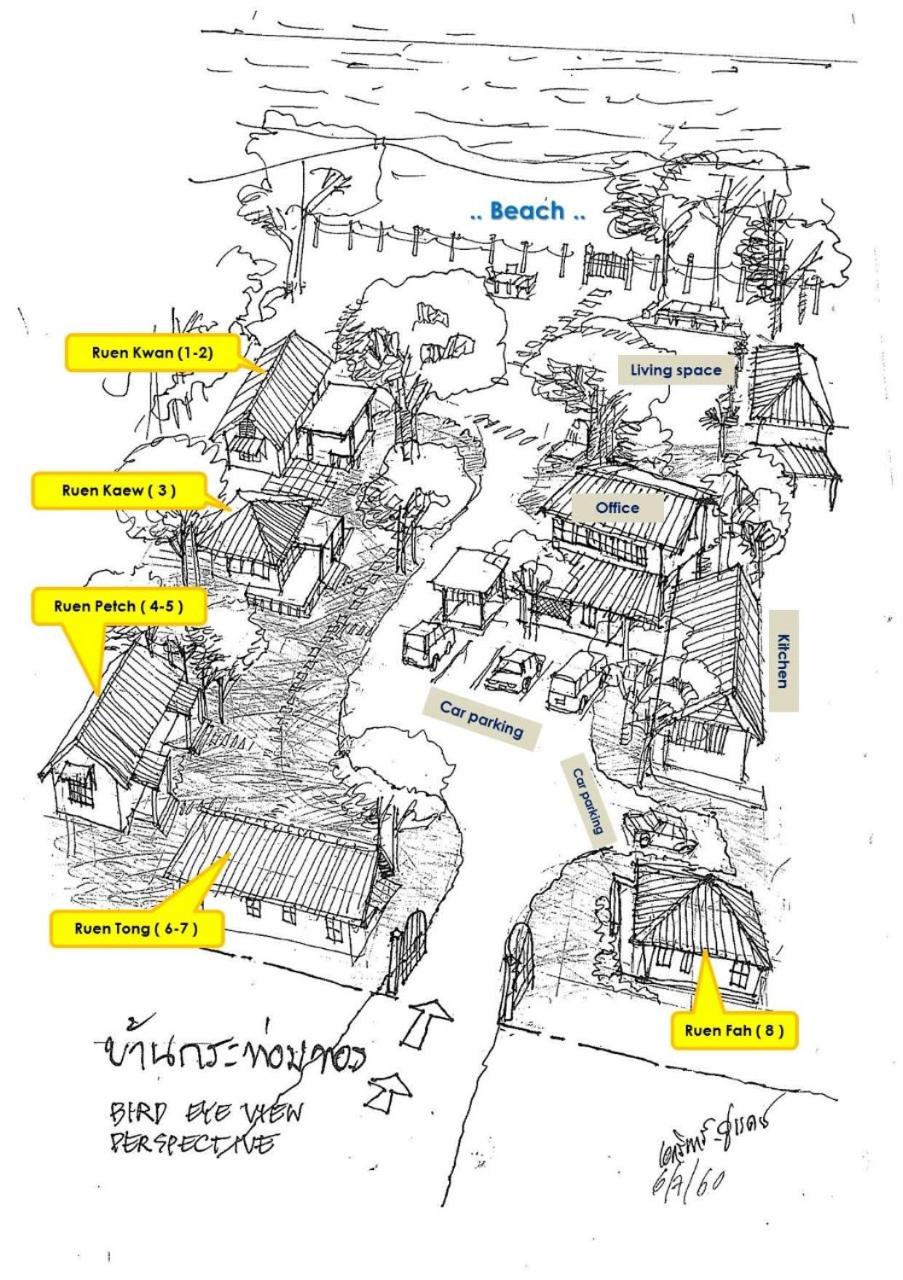 .. Beach ..
Ruen Kwan (1-2)
Living space
Ruen Kaew ( 3 )
Office
Ruen Petch ( 4-5 )
Kitchen
Car parking
Car parking
Ruen Tong ( 6-7 )
Ruen Fah ( 8 )
บ้านกระท่อมทอง
BIRD EYE VIEW
PERSPECTIVE
6/7/60